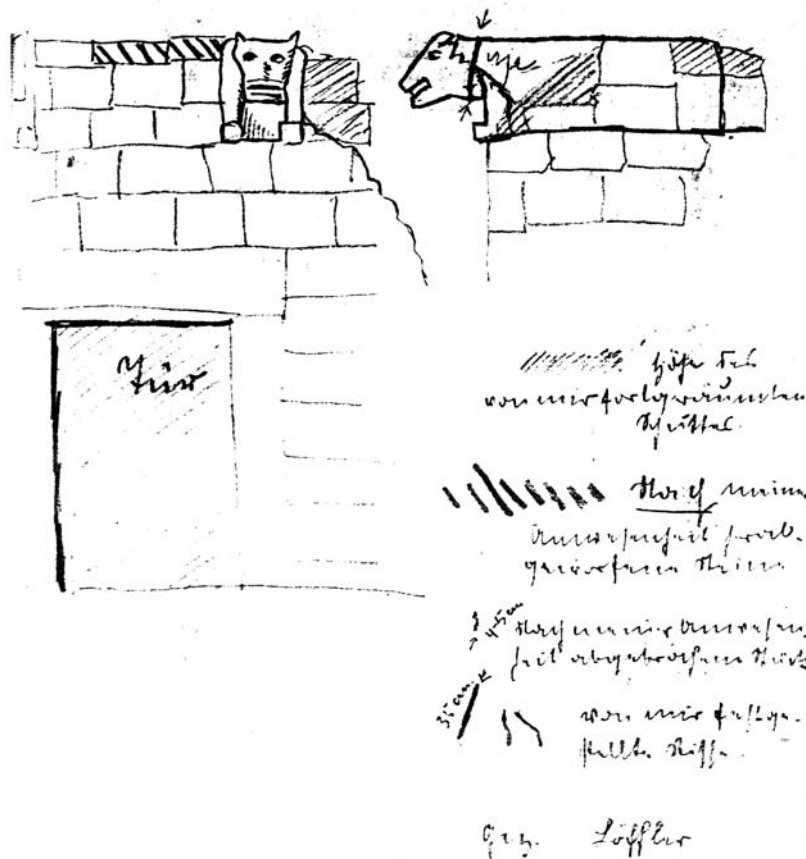 Risse
Tür
Höhe des
von mir fortgeräumten
Schuttes.
Nach meiner
Anwesenheit herab-
geworfene Steine
45 cm Nach meiner Anwesen-
heit abgebrochene Stücke
35 cm
von mir festge-
stellte Risse.
gez. Löffler